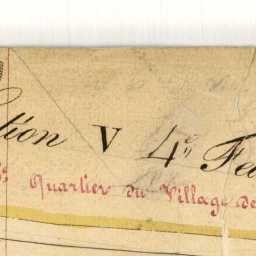 tion V 4e Fe
Quartier du Village de